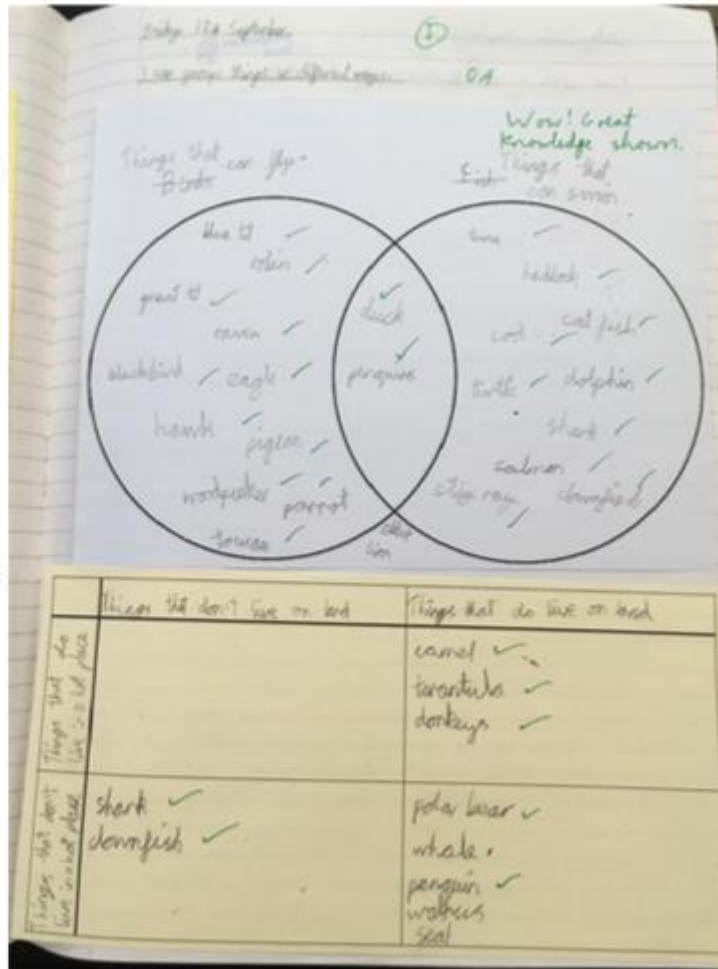 Friday 18th September.
I can group things in different ways.
OA
Wow! Great
Knowledge shown.
Things that can fly
Birds
Fish Things that
can swim
blue tit
robin
great tit
raven
blackbird
eagle
hawk
pigeon
woodpecker
parrot
toucan
duck
penguins
tuna
haddock
cod
cat fish
turtle
dolphin
shark
salmon
sting ray
clownfish
lion
Things that don't live on land
Things that do live on land
Things that do
live in a hot place
camel
tarantula
donkeys
Things that don't
live in a hot place
shark
clownfish
polar bear
whale
penguin
walrus
seal